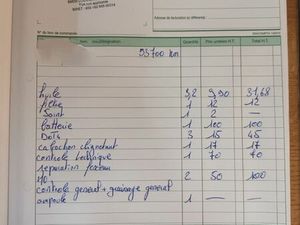 Adresse de facturation (si différente)
N° du bon de commande
Quantité Prix unitaire H.T. Total H.T.
55700 km
huile 3,2 9,90 31,68
filtre 1 12 12
Joint 1 2 —
batterie 1 100 100
Dot4 3 15 45
cabochon clignotant 1 17 17
controle technique 1 70 70
reparation faisceau
MO 2 50 100
controle general + graissage general
ampoule 1 —